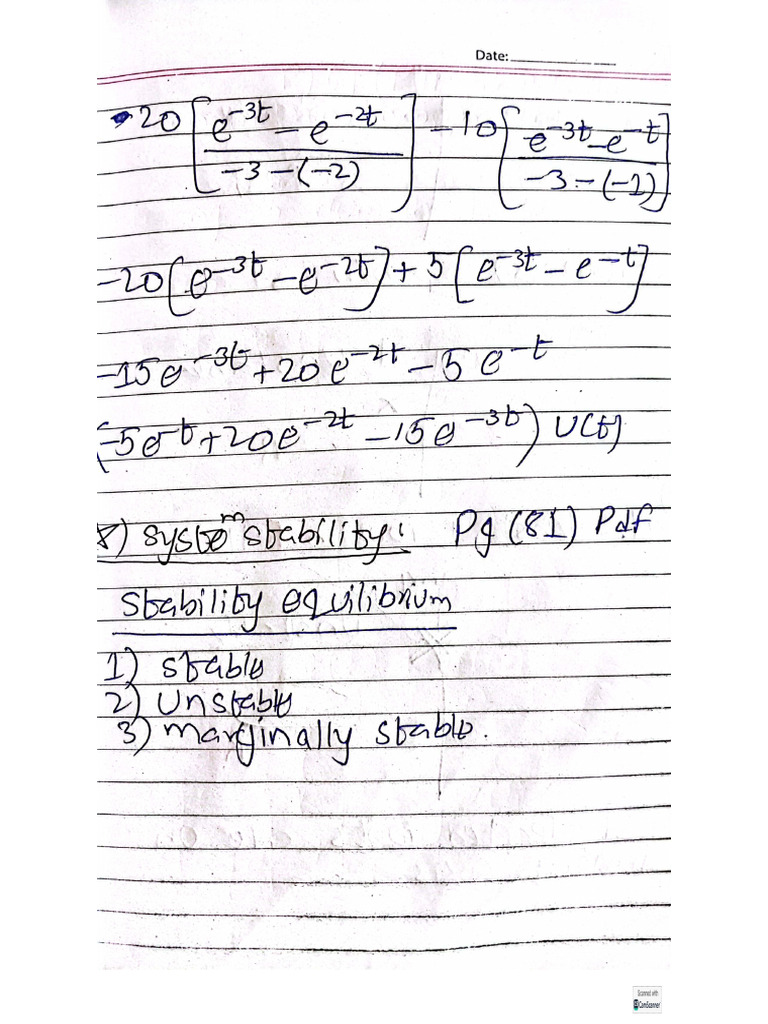 Date:
20 [ (e^{-3t} - e^{-2t}) / (-3-(-2)) ] - 10 [ (e^{-3t} - e^{-t}) / (-3-(-1)) ]
-20 [e^{-3t} - e^{-2t}] + 5 [e^{-3t} - e^{-t}]
-15e^{-3t} + 20e^{-2t} - 5e^{-t}
(-5e^{-t} + 20e^{-2t} - 15e^{-3t}) U(t)
8) System stability: Pg (81) Pdf
Stability equilibrium
1) stable
2) Unstable
3) marginally stable.
Scanned with
CamScanner